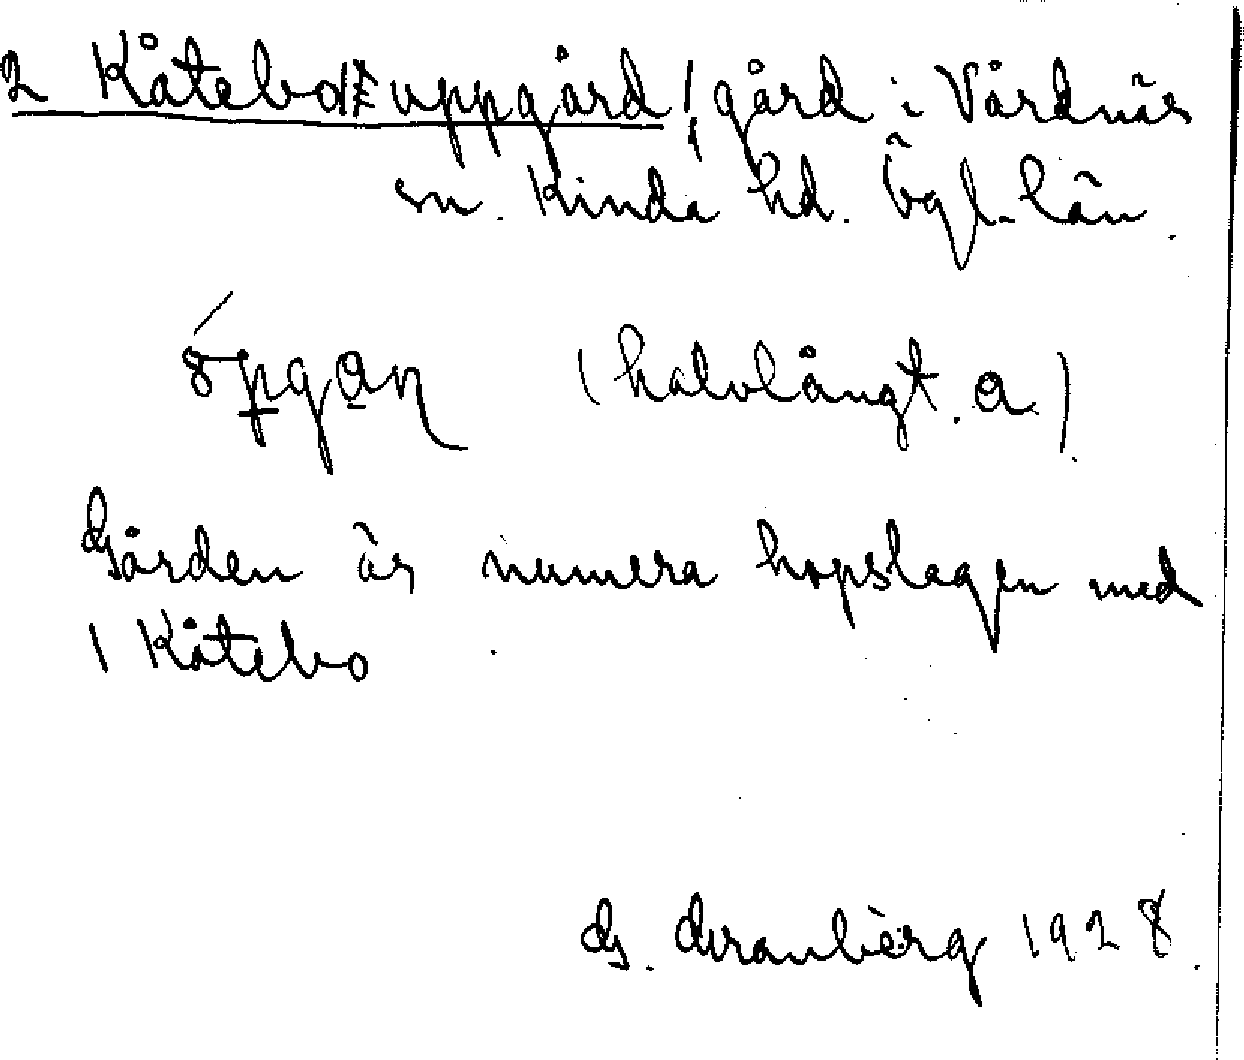 2 Kåtebo uppgård, gård i Vårdnäs
sn. Kinda hd. Ögl. län.
(halvlångt. a)
Gården är numera hopslagen med
1 Kåtebo
G. Granberg 1928.